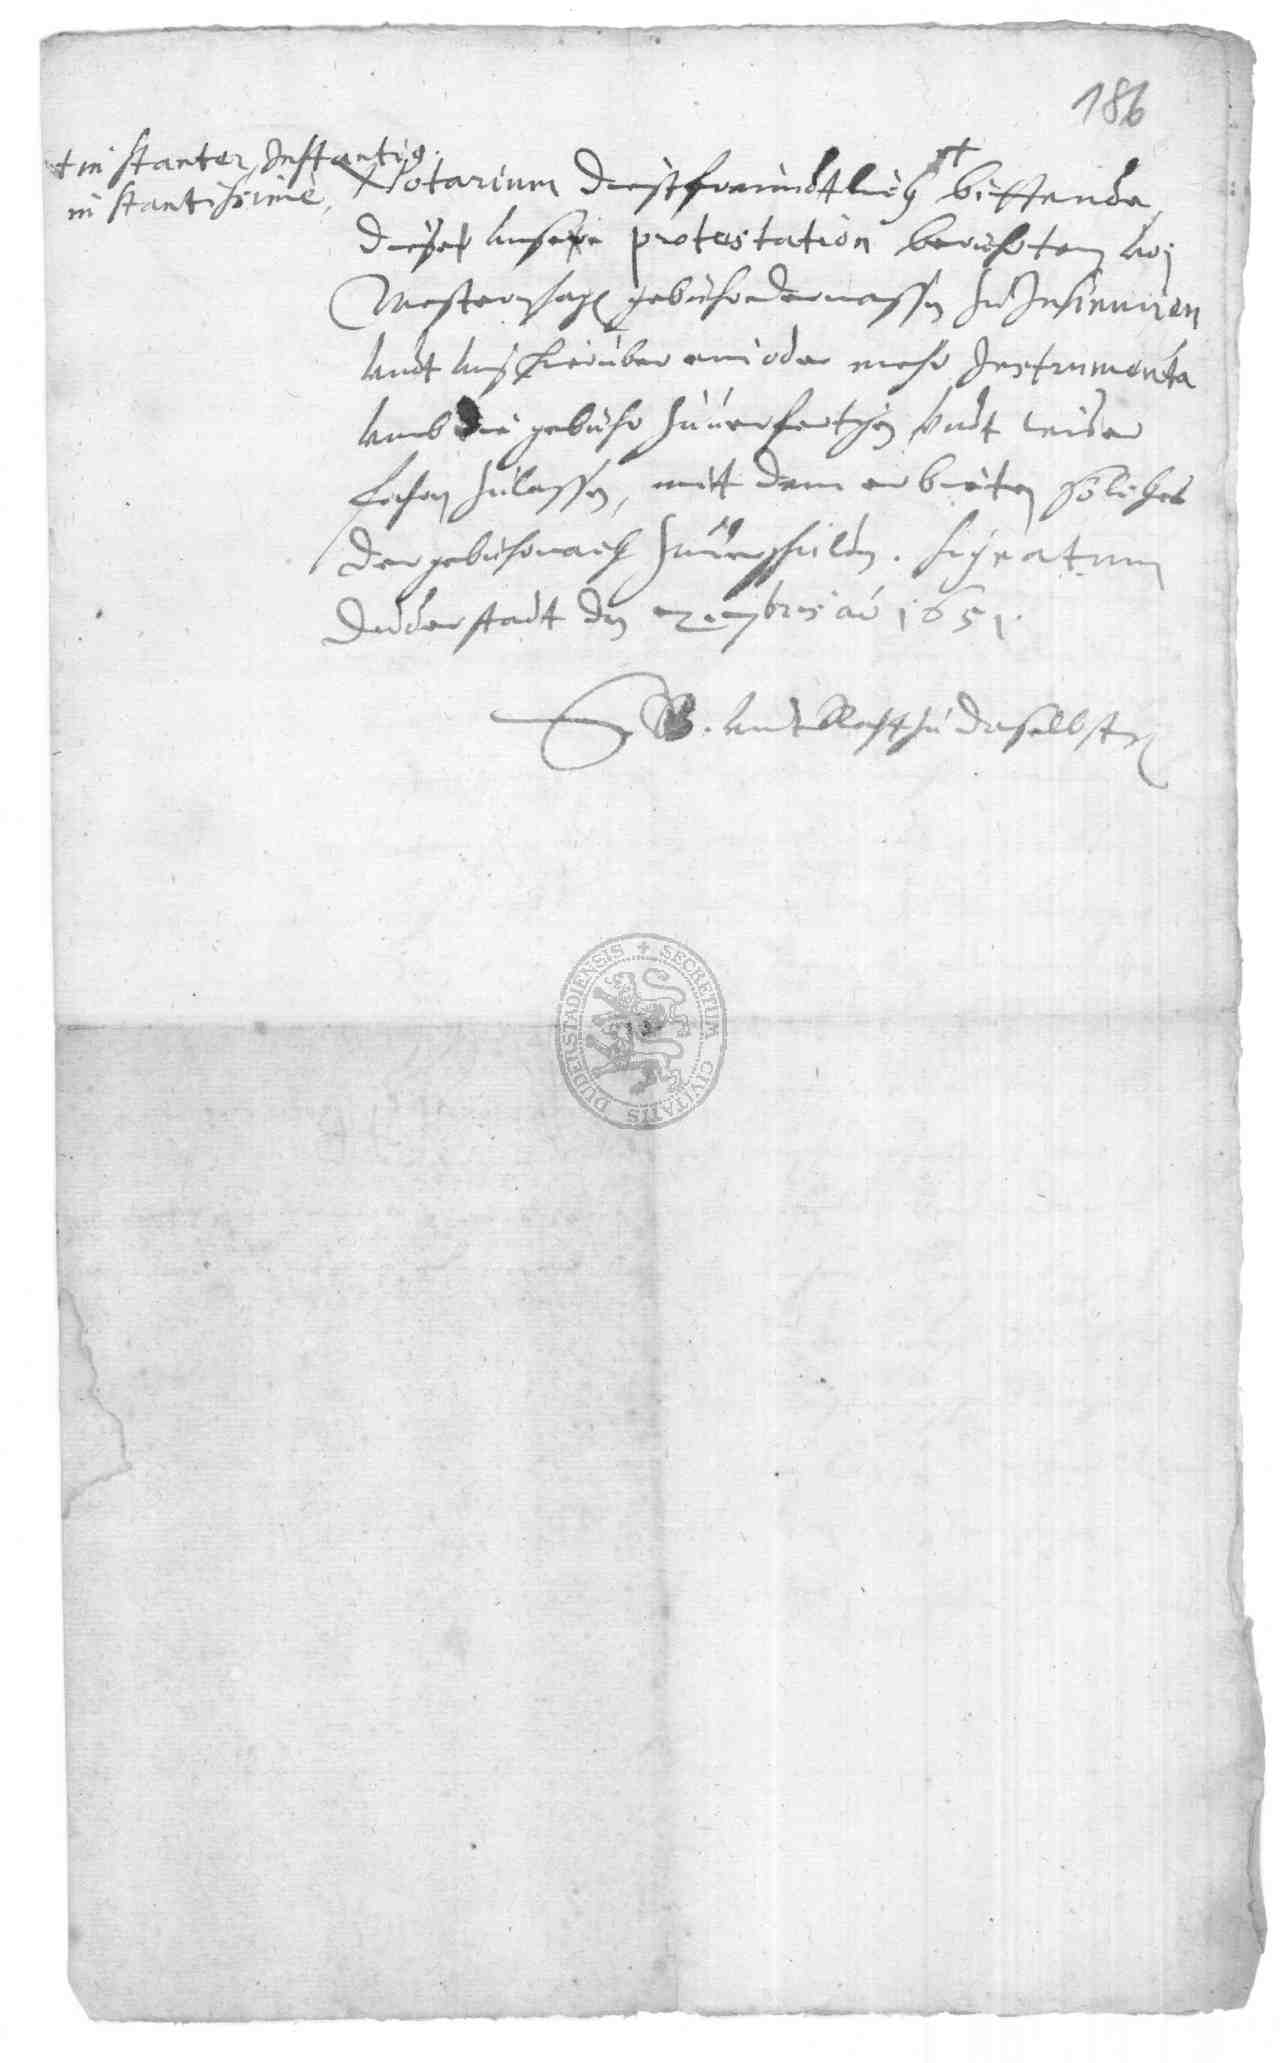 186
+ in stanter, Instantiq.
in stantissime,
Notarium dienstfreundtlich + bittende,
diese unsere protestation berührtem von
Westernhagen gebührendermassen zu Insinuiren
undt unß hierüber ein oder mehr Instrumenta
umb die gebühr zuverfertigen undt wieder
fahren zulassen, mitt dem erbieten solches
der gebühr nach zuverschulden. Signatum
Duderstadt den bris ao 1651.
B. undt Raht zu daselbsten
SECRETUM CIVITATIS DUDERSTADIENSIS